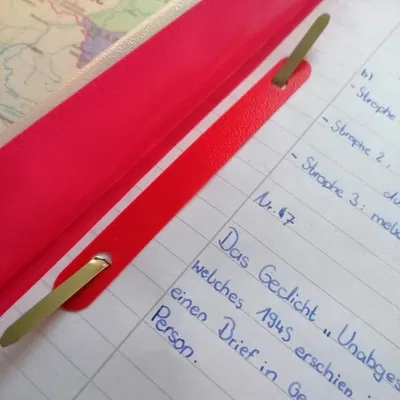 b)
- Strophe
- Strophe 2:
du
- Strophe 3: melo
Nr. 7
Das Gedicht „Unabges
welches 1945 erschien
einen Brief in Ge
Person.